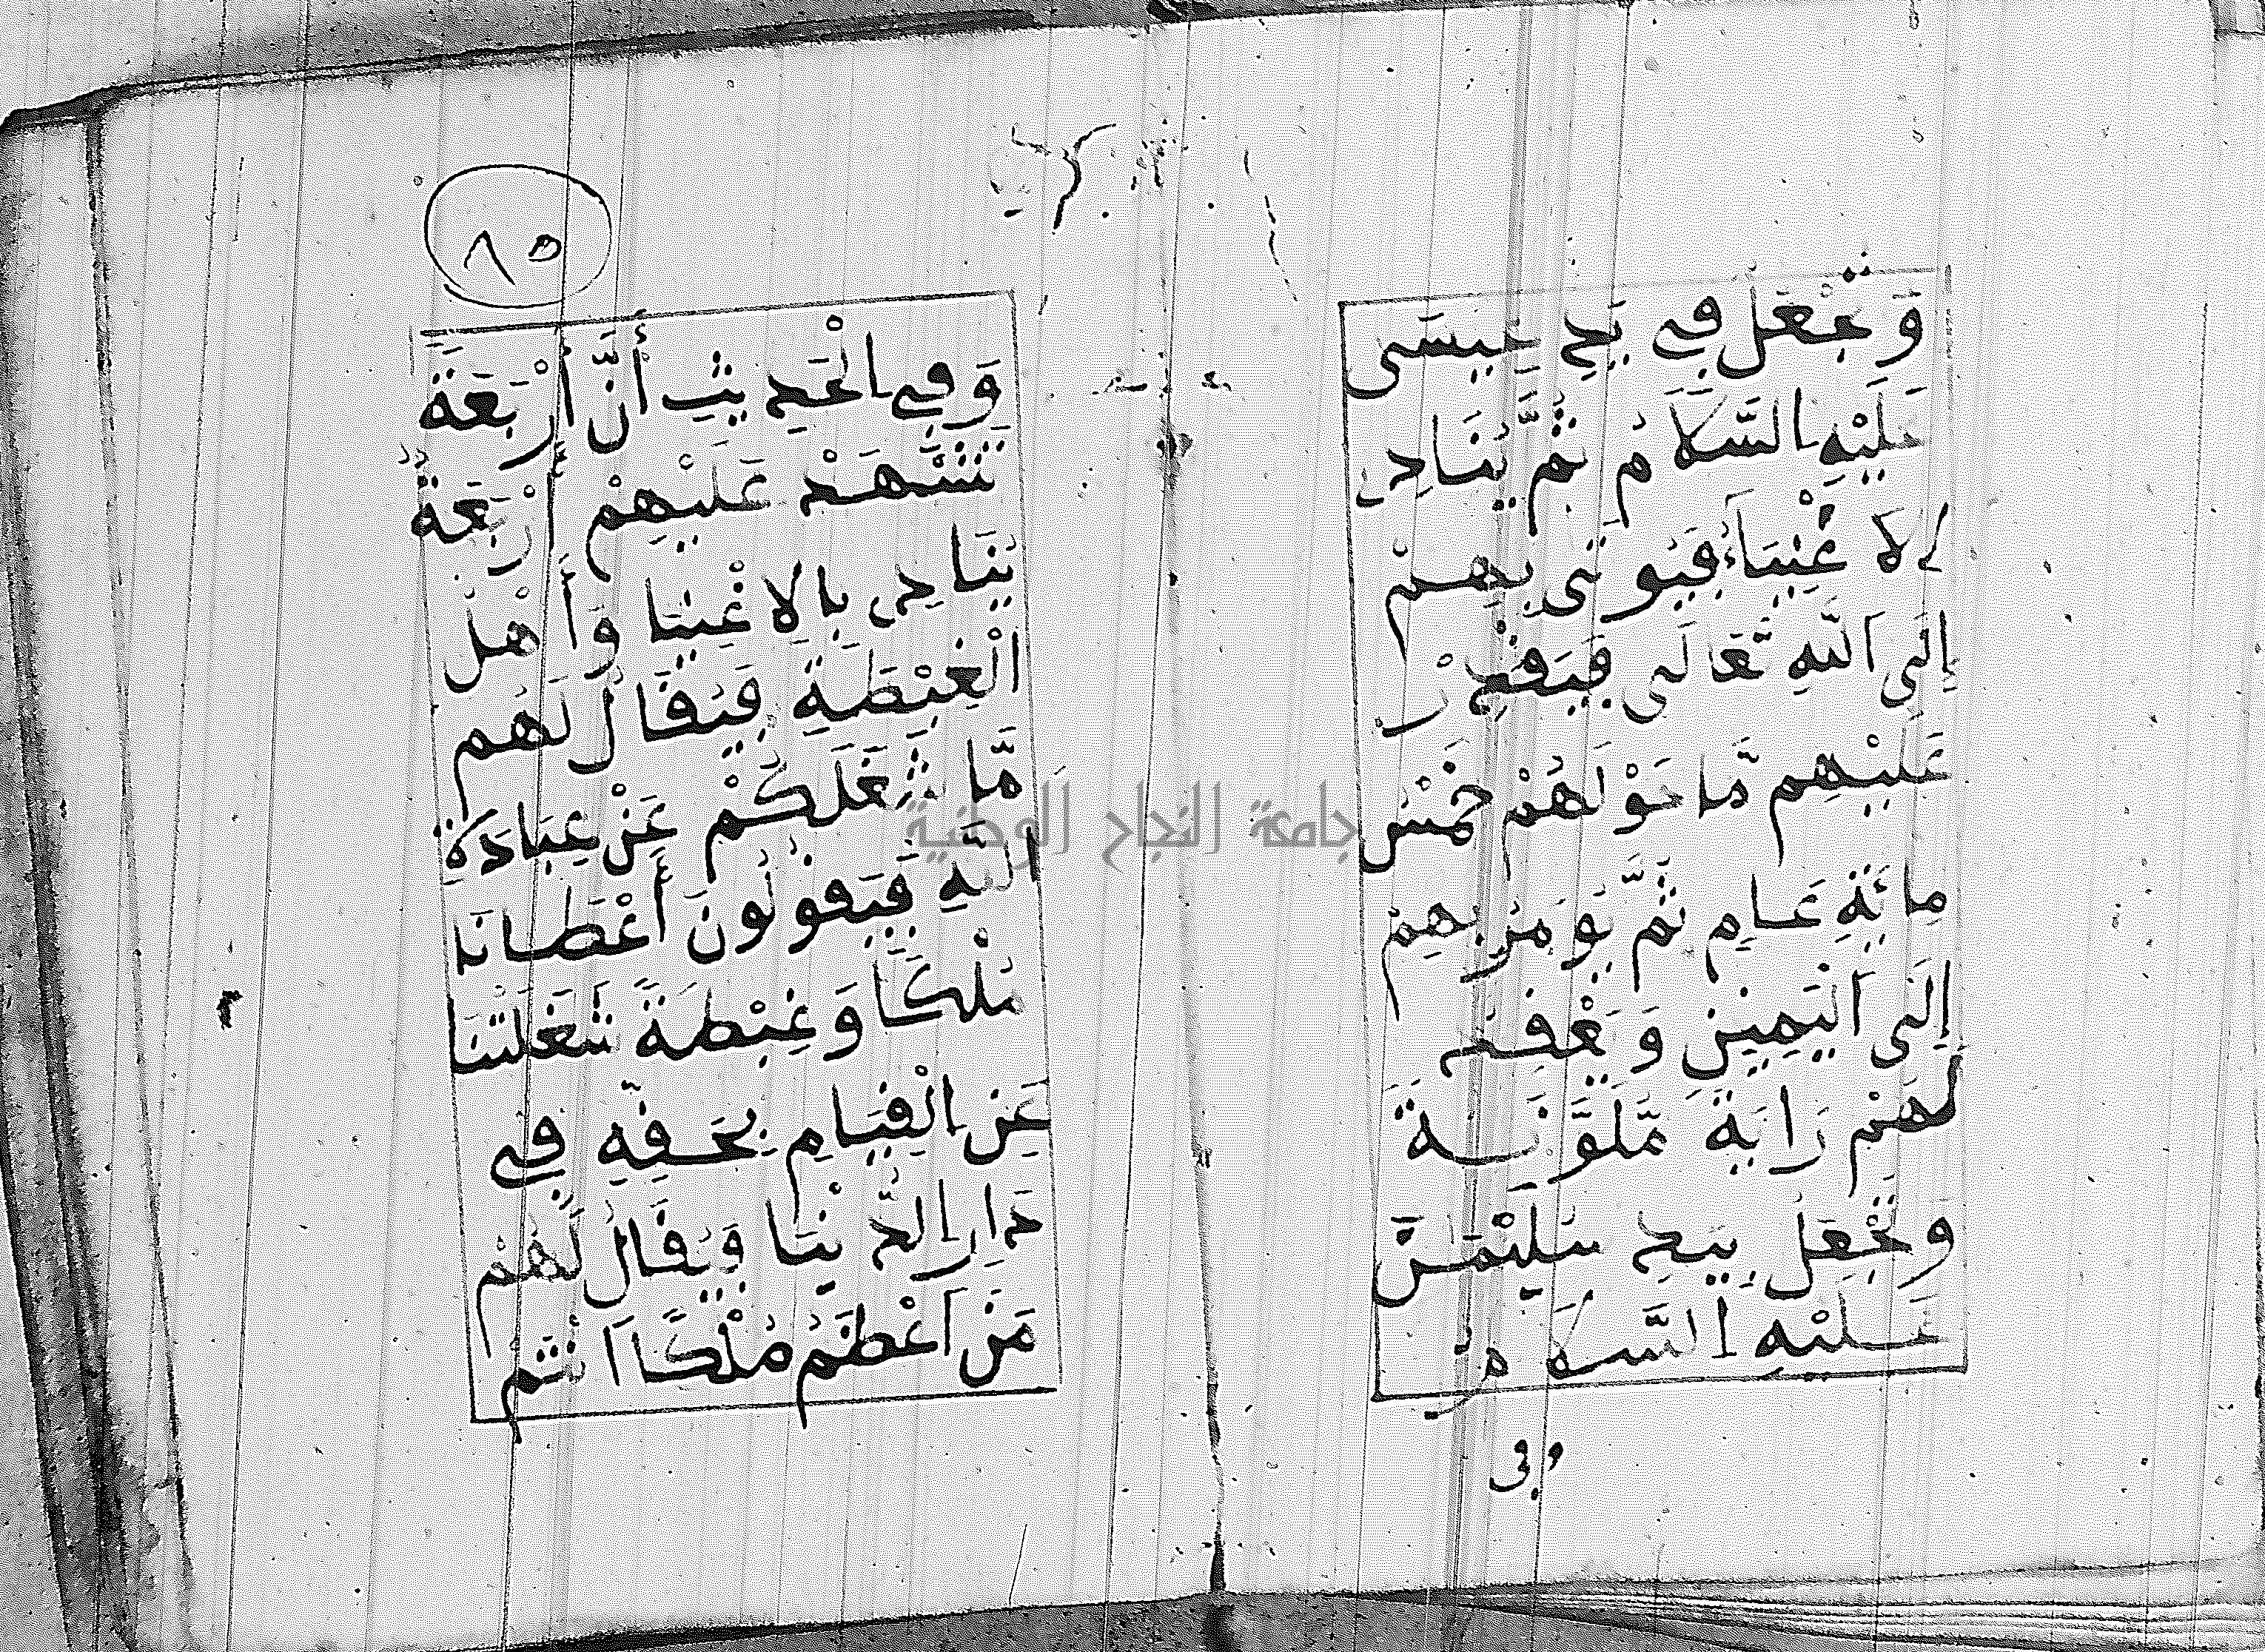 وَتُجْعَلُ فِي يَدِ عِيسَى
عَلَيْهِ السَّلَامُ ثُمَّ يُنَادِى
الَاغْنِيَاءُ فَيُوتَى بِهِمْ
إِلَى اللَّهِ تَعَالَى فَيَعُدُّ
عَلَيْهِم مَّا خَوَّلَهُمْ خَمْسَ
مِائَةِ عَامٍ ثُمَّ يُومَرُ بِهِمْ
إِلَى الْيَمِينِ وَيُعْقَدُ
لَهُمْ رَايَةً مُّلَوَّنَةً
وَتُجْعَلُ بِيَدِ سُلَيْمَنَ
عَلَيْهِ السَّلَامُ
وفى
٨٥
وَفِي الْحَدِيثِ أَنَّ أَرْبَعَةً
تُسْتَشْهَدُ عَلَيْهِمْ أَرْبَعَةٌ
يُنَادِى بِالَاغْنِيَا وَأَهْلِ
الْغِبْطَةِ فَيُقَالُ لَهُم
مَّا شَغَلَكُمْ عَنْ عِبَادَةِ
اللَّهِ فَيَقُولُونَ أَعْطَانَا
مُلْكًا وَغِبْطَةً شَغَلَتْنَا
عَنِ الْقِيَامِ بِحَقِّهِ فِي
دَارِ الدُّنْيَا وَيُقَالُ لَهُمْ
مَنَ اعْظَمُ مُلْكًا اَنتُمُ
جامعة النجاح الوطنية